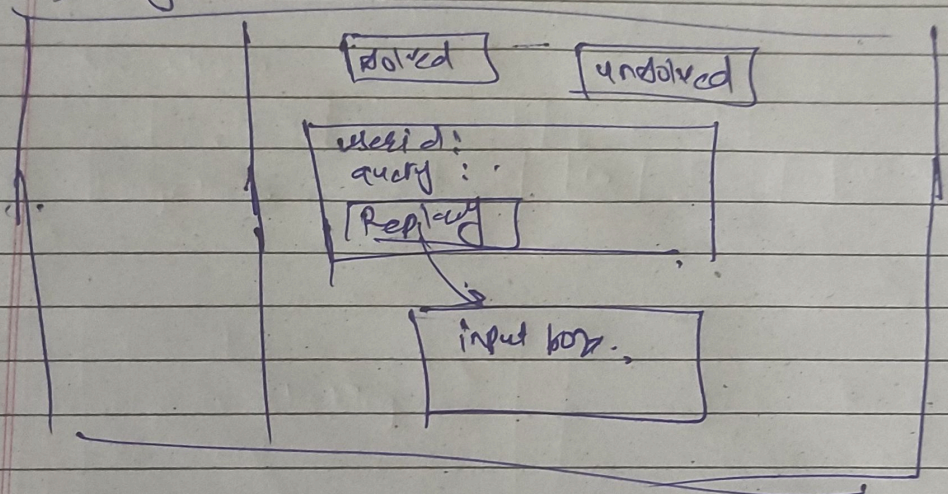 solved unsolved
userid:
query :
Replay
input box.